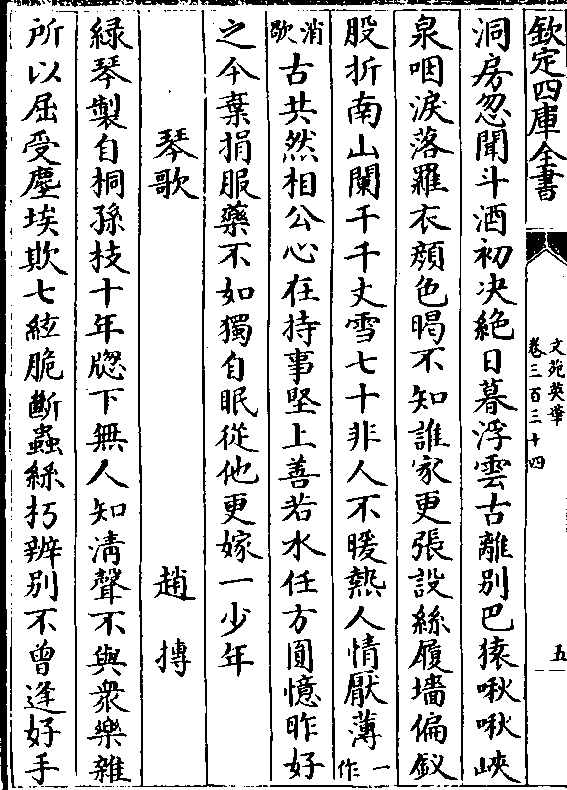 欽定四庫全書
文苑英華
卷三百三十四
五
洞房忽聞斗酒初决絶日暮浮雲古離别巴猿啾啾峽
泉咽淚落羅衣顔色暍不知誰家更張設絲履墻偏釵
股折南山闌干千丈雪七十非人不暖熱人情厭薄一作
消歇古共然相公心在持事堅上善若水任方圓憶昨好
之今棄捐服藥不如獨自眠從他更嫁一少年
琴歌 趙摶
緑琴製自桐孫枝十年牕下無人知清聲不與衆樂雜
所以屈受塵埃欺七絃脆斷蟲絲朽辨别不曾逢好手